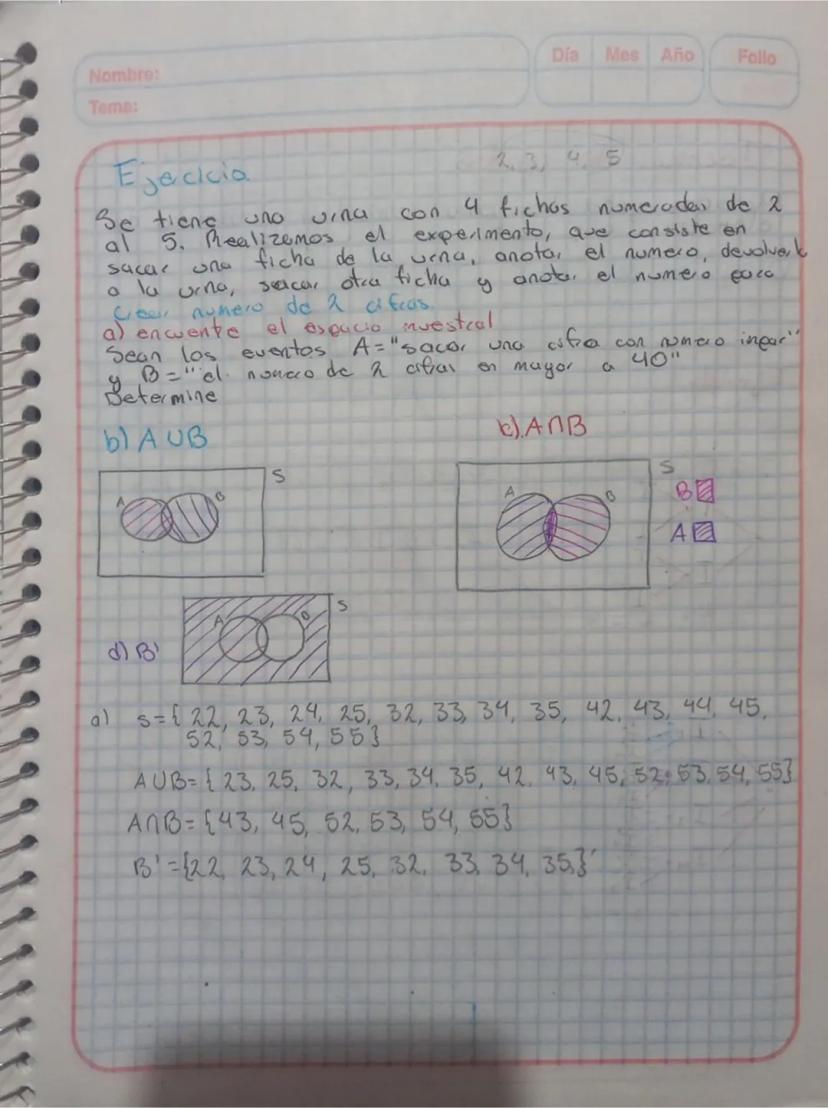 Nombre:
Día Mes Año
Folio
Tema:
Ejercicio
2, 3, 4, 5
Se tiene una urna con 4 fichas numeradas de 2
al 5. Realizemos el experimento, que consiste en
sacar una ficha de la urna, anotar el numero, devolverla
a la urna, sacar otra ficha y anotar el numero para
Crear numero de 2 cifras.
a) encuentre el espacio muestral
Sean los eventos A="sacar una cifra con numero impar"
y B="el numero de 2 cifras en mayor a 40"
Determine
b) A∪B
c) A∩B
S
A B
S
A B
B
A
d) B'
S
A B
a) S={22, 23, 24, 25, 32, 33, 34, 35, 42, 43, 44, 45,
52, 53, 54, 55}
A∪B={23, 25, 32, 33, 34, 35, 42, 43, 45, 52, 53, 54, 55}
A∩B={43, 45, 52, 53, 54, 55}
B'={22, 23, 24, 25, 32, 33, 34, 35}